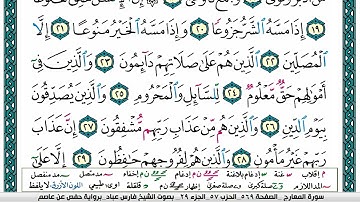 إِذَا مَسَّهُ الشَّرُّ جَزُوعًا ٢٠ وَإِذَا مَسَّهُ الْخَيْرُ مَنُوعًا ٢١ إِلَّا
الْمُصَلِّينَ ٢٢ الَّذِينَ هُمْ عَلَىٰ صَلَاتِهِمْ دَائِمُونَ ٢٣ وَالَّذِينَ فِي
أَمْوَالِهِمْ حَقٌّ مَعْلُومٌ ٢٤ لِلسَّائِلِ وَالْمَحْرُومِ ٢٥ وَالَّذِينَ يُصَدِّقُونَ
بِيَوْمِ الدِّينِ ٢٦ وَالَّذِينَ هُمْ مِنْ عَذَابِ رَبِّهِمْ مُشْفِقُونَ ٢٧ إِنَّ عَذَابَ
رَبِّهِمْ غَيْرُ مَأْمُونٍ ٢٨ وَالَّذِينَ هُمْ لِفُرُوجِهِمْ حَافِظُونَ ٢٩ إِلَّا عَلَىٰ
سورة المعارج الصفحة ٥٦٩ الحزب ٥٧ الجزء ٢٩ بصوت الشيخ فارس عباد برواية حفص عن عاصم